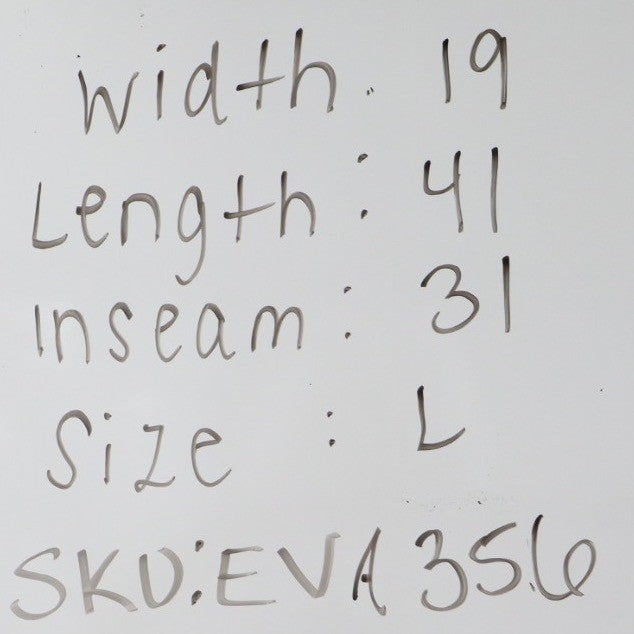 Width: 19
Length: 41
Inseam: 31
Size: L
SKU:EVA 356